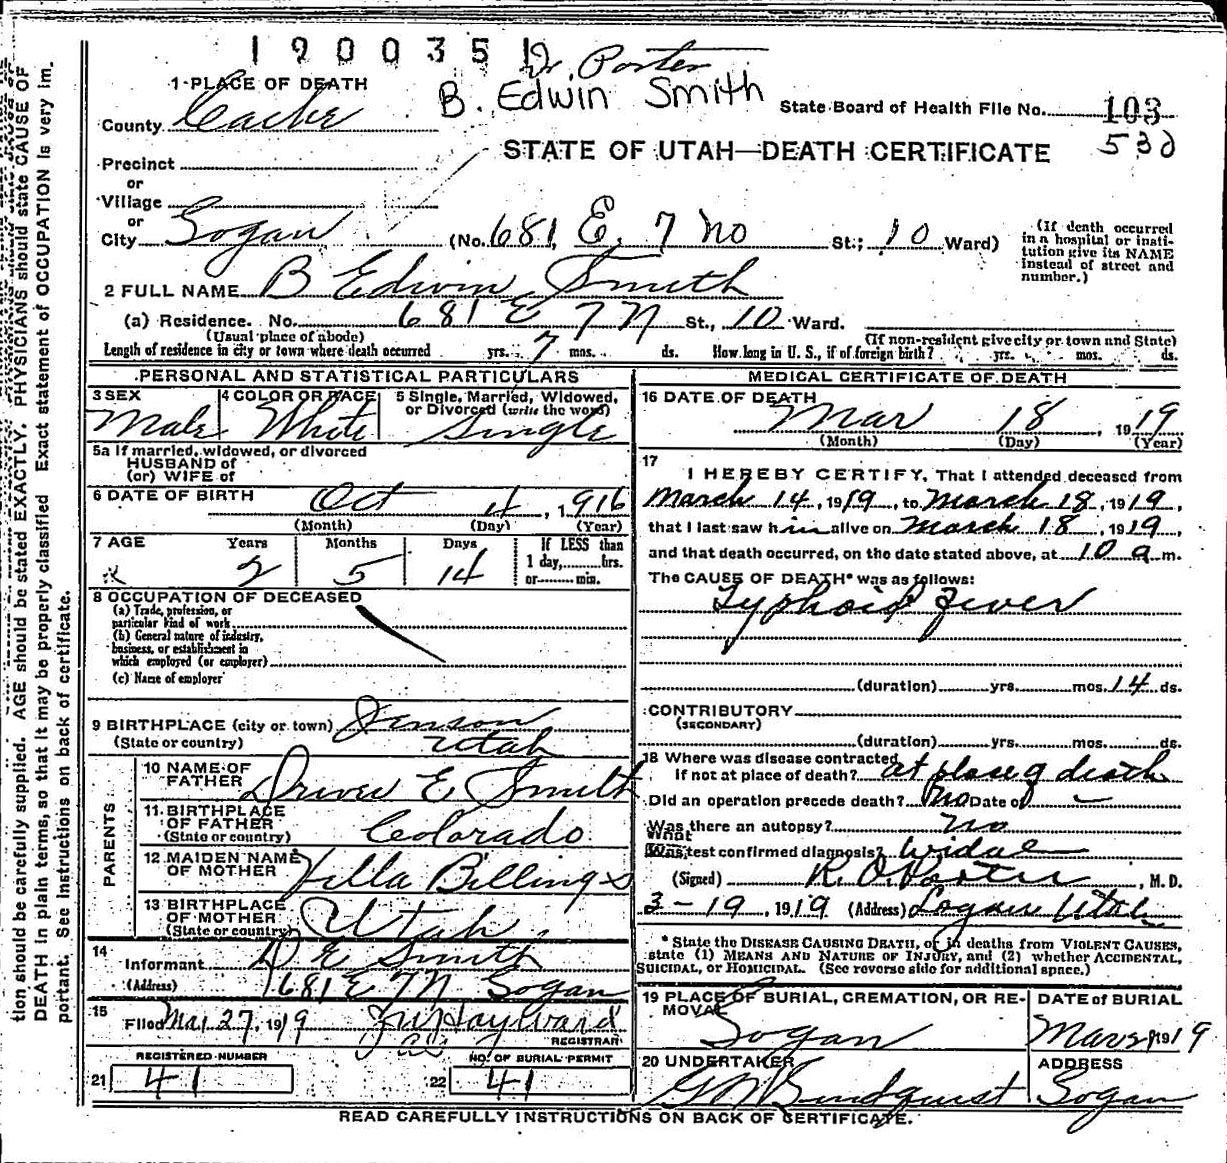 1900351
Dr. Porter
1 PLACE OF DEATH
B. Edwin Smith
County Cache
State Board of Health File No. 103
530
STATE OF UTAH—DEATH CERTIFICATE
Precinct
or
Village
or
City Logan (No. 681 E. 7 No St.; 10 Ward)
(If death occurred in a hospital or institution give its NAME instead of street and number.)
2 FULL NAME B Edwin Smith
(a) Residence. No. 681 E 7 N St., 10 Ward.
(Usual place of abode) (If non-resident give city or town and State)
Length of residence in city or town where death occurred yrs. 7 mos. ds. How long in U. S., if of foreign birth? yrs. mos. ds.
PERSONAL AND STATISTICAL PARTICULARS
3 SEX Male
4 COLOR OR RACE White
5 Single, Married, Widowed, or Divorced (write the word) Single
5a If married, widowed, or divorced
HUSBAND of
(or) WIFE of
6 DATE OF BIRTH Oct 4, 1916
(Month) (Day) (Year)
7 AGE Years Months Days If LESS than
2 5 14 1 day, hrs.
or min.
8 OCCUPATION OF DECEASED
(a) Trade, profession, or
particular kind of work
(b) General nature of industry,
business, or establishment in
which employed (or employer)
(c) Name of employer
9 BIRTHPLACE (city or town) Jenson
(State or country) Utah
PARENTS
10 NAME OF FATHER E Smith
11 BIRTHPLACE OF FATHER (State or country) Colorado
12 MAIDEN NAME OF MOTHER Billings
13 BIRTHPLACE OF MOTHER (State or country) Utah
14 Informant D E Smith
(Address) 681 E 7 N Logan
15 Filed Mar 27, 1919 Hayward
REGISTRAR
REGISTERED NUMBER
21 41
NO. OF BURIAL PERMIT
22 41
MEDICAL CERTIFICATE OF DEATH
16 DATE OF DEATH
Mar 18, 1919
(Month) (Day) (Year)
17
I HEREBY CERTIFY, That I attended deceased from
March 14, 1919, to March 18, 1919,
that I last saw him alive on March 18, 1919,
and that death occurred, on the date stated above, at 10 a m.
The CAUSE OF DEATH* was as follows:
Typhoid Fever
(duration) yrs. mos. 14 ds.
CONTRIBUTORY
(SECONDARY)
(duration) yrs. mos. ds.
18 Where was disease contracted
If not at place of death? at place of death
Did an operation precede death? No Date of —
Was there an autopsy? no
What test confirmed diagnosis? Widal
(Signed) R. O. Porter, M. D.
3-19, 1919 (Address) Logan Utah
* State the DISEASE CAUSING DEATH, or in deaths from VIOLENT CAUSES,
state (1) MEANS AND NATURE OF INJURY, and (2) whether ACCIDENTAL,
SUICIDAL, or HOMICIDAL. (See reverse side for additional space.)
19 PLACE OF BURIAL, CREMATION, OR REMOVAL Logan
DATE of BURIAL Mar 1919
20 UNDERTAKER
ADDRESS Logan
READ CAREFULLY INSTRUCTIONS ON BACK OF CERTIFICATE.
tion should be carefully supplied. AGE should be stated EXACTLY. PHYSICIANS should state CAUSE OF
DEATH in plain terms, so that it may be properly classified Exact statement of OCCUPATION is very im.
portant. See instructions on back of certificate.